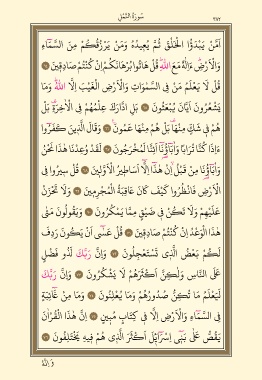 سُورَةُ النَّمْلِ
٣٨٢
اَمَّنْ يَبْدَؤُا الْخَلْقَ ثُمَّ يُعِيدُهُ وَمَنْ يَرْزُقُكُمْ مِنَ السَّمَٓاءِ
وَالْاَرْضِۜ ءَاِلٰهٌ مَعَ اللّٰهِۜ قُلْ هَاتُوا بُرْهَانَكُمْ اِنْ كُنْتُمْ صَادِقِينَ
قُلْ لَا يَعْلَمُ مَنْ فِي السَّمٰوَاتِ وَالْاَرْضِ الْغَيْبَ اِلَّا اللّٰهُۜ وَمَا
يَشْعُرُونَ اَيَّانَ يُبْعَثُونَ بَلِ ادَّارَكَ عِلْمُهُمْ فِي الْاٰخِرَةِ۠ بَلْ
هُمْ فِي شَكٍّ مِنْهَا۠ بَلْ هُمْ مِنْهَا عَمُونَ وَقَالَ الَّذِينَ كَفَرُٓوا
ءَاِذَا كُنَّا تُرَابًا وَاٰبَٓاؤُ۬نَٓا اَئِنَّا لَمُخْرَجُونَ لَقَدْ وُعِدْنَا هٰذَا نَحْنُ
وَاٰبَٓاؤُ۬نَا مِنْ قَبْلُۙ اِنْ هٰذَٓا اِلَّٓا اَسَاطِيرُ الْاَوَّلِينَ قُلْ سِيرُوا فِي
الْاَرْضِ فَانْظُرُوا كَيْفَ كَانَ عَاقِبَةُ الْمُجْرِمِينَ وَلَا تَحْزَنْ
عَلَيْهِمْ وَلَا تَكُنْ فِي ضَيْقٍ مِمَّا يَمْكُرُونَ وَيَقُولُونَ مَتٰى
هٰذَا الْوَعْدُ اِنْ كُنْتُمْ صَادِقِينَ قُلْ عَسٰٓى اَنْ يَكُونَ رَدِفَ
لَكُمْ بَعْضُ الَّذِي تَسْتَعْجِلُونَ وَاِنَّ رَبَّكَ لَذُو فَضْلٍ
عَلَى النَّاسِ وَلٰكِنَّ اَكْثَرَهُمْ لَا يَشْكُرُونَ وَاِنَّ رَبَّكَ
لَيَعْلَمُ مَا تُكِنُّ صُدُورُهُمْ وَمَا يُعْلِنُونَ وَمَا مِنْ غَٓائِبَةٍ
فِي السَّمَٓاءِ وَالْاَرْضِ اِلَّا فِي كِتَابٍ مُبِينٍ اِنَّ هٰذَا الْقُرْاٰنَ
يَقُصُّ عَلٰى بَنِٓي اِسْرَٓائِلَ اَكْثَرَ الَّذِي هُمْ فِيهِ يَخْتَلِفُونَ
وَاِنَّهُ